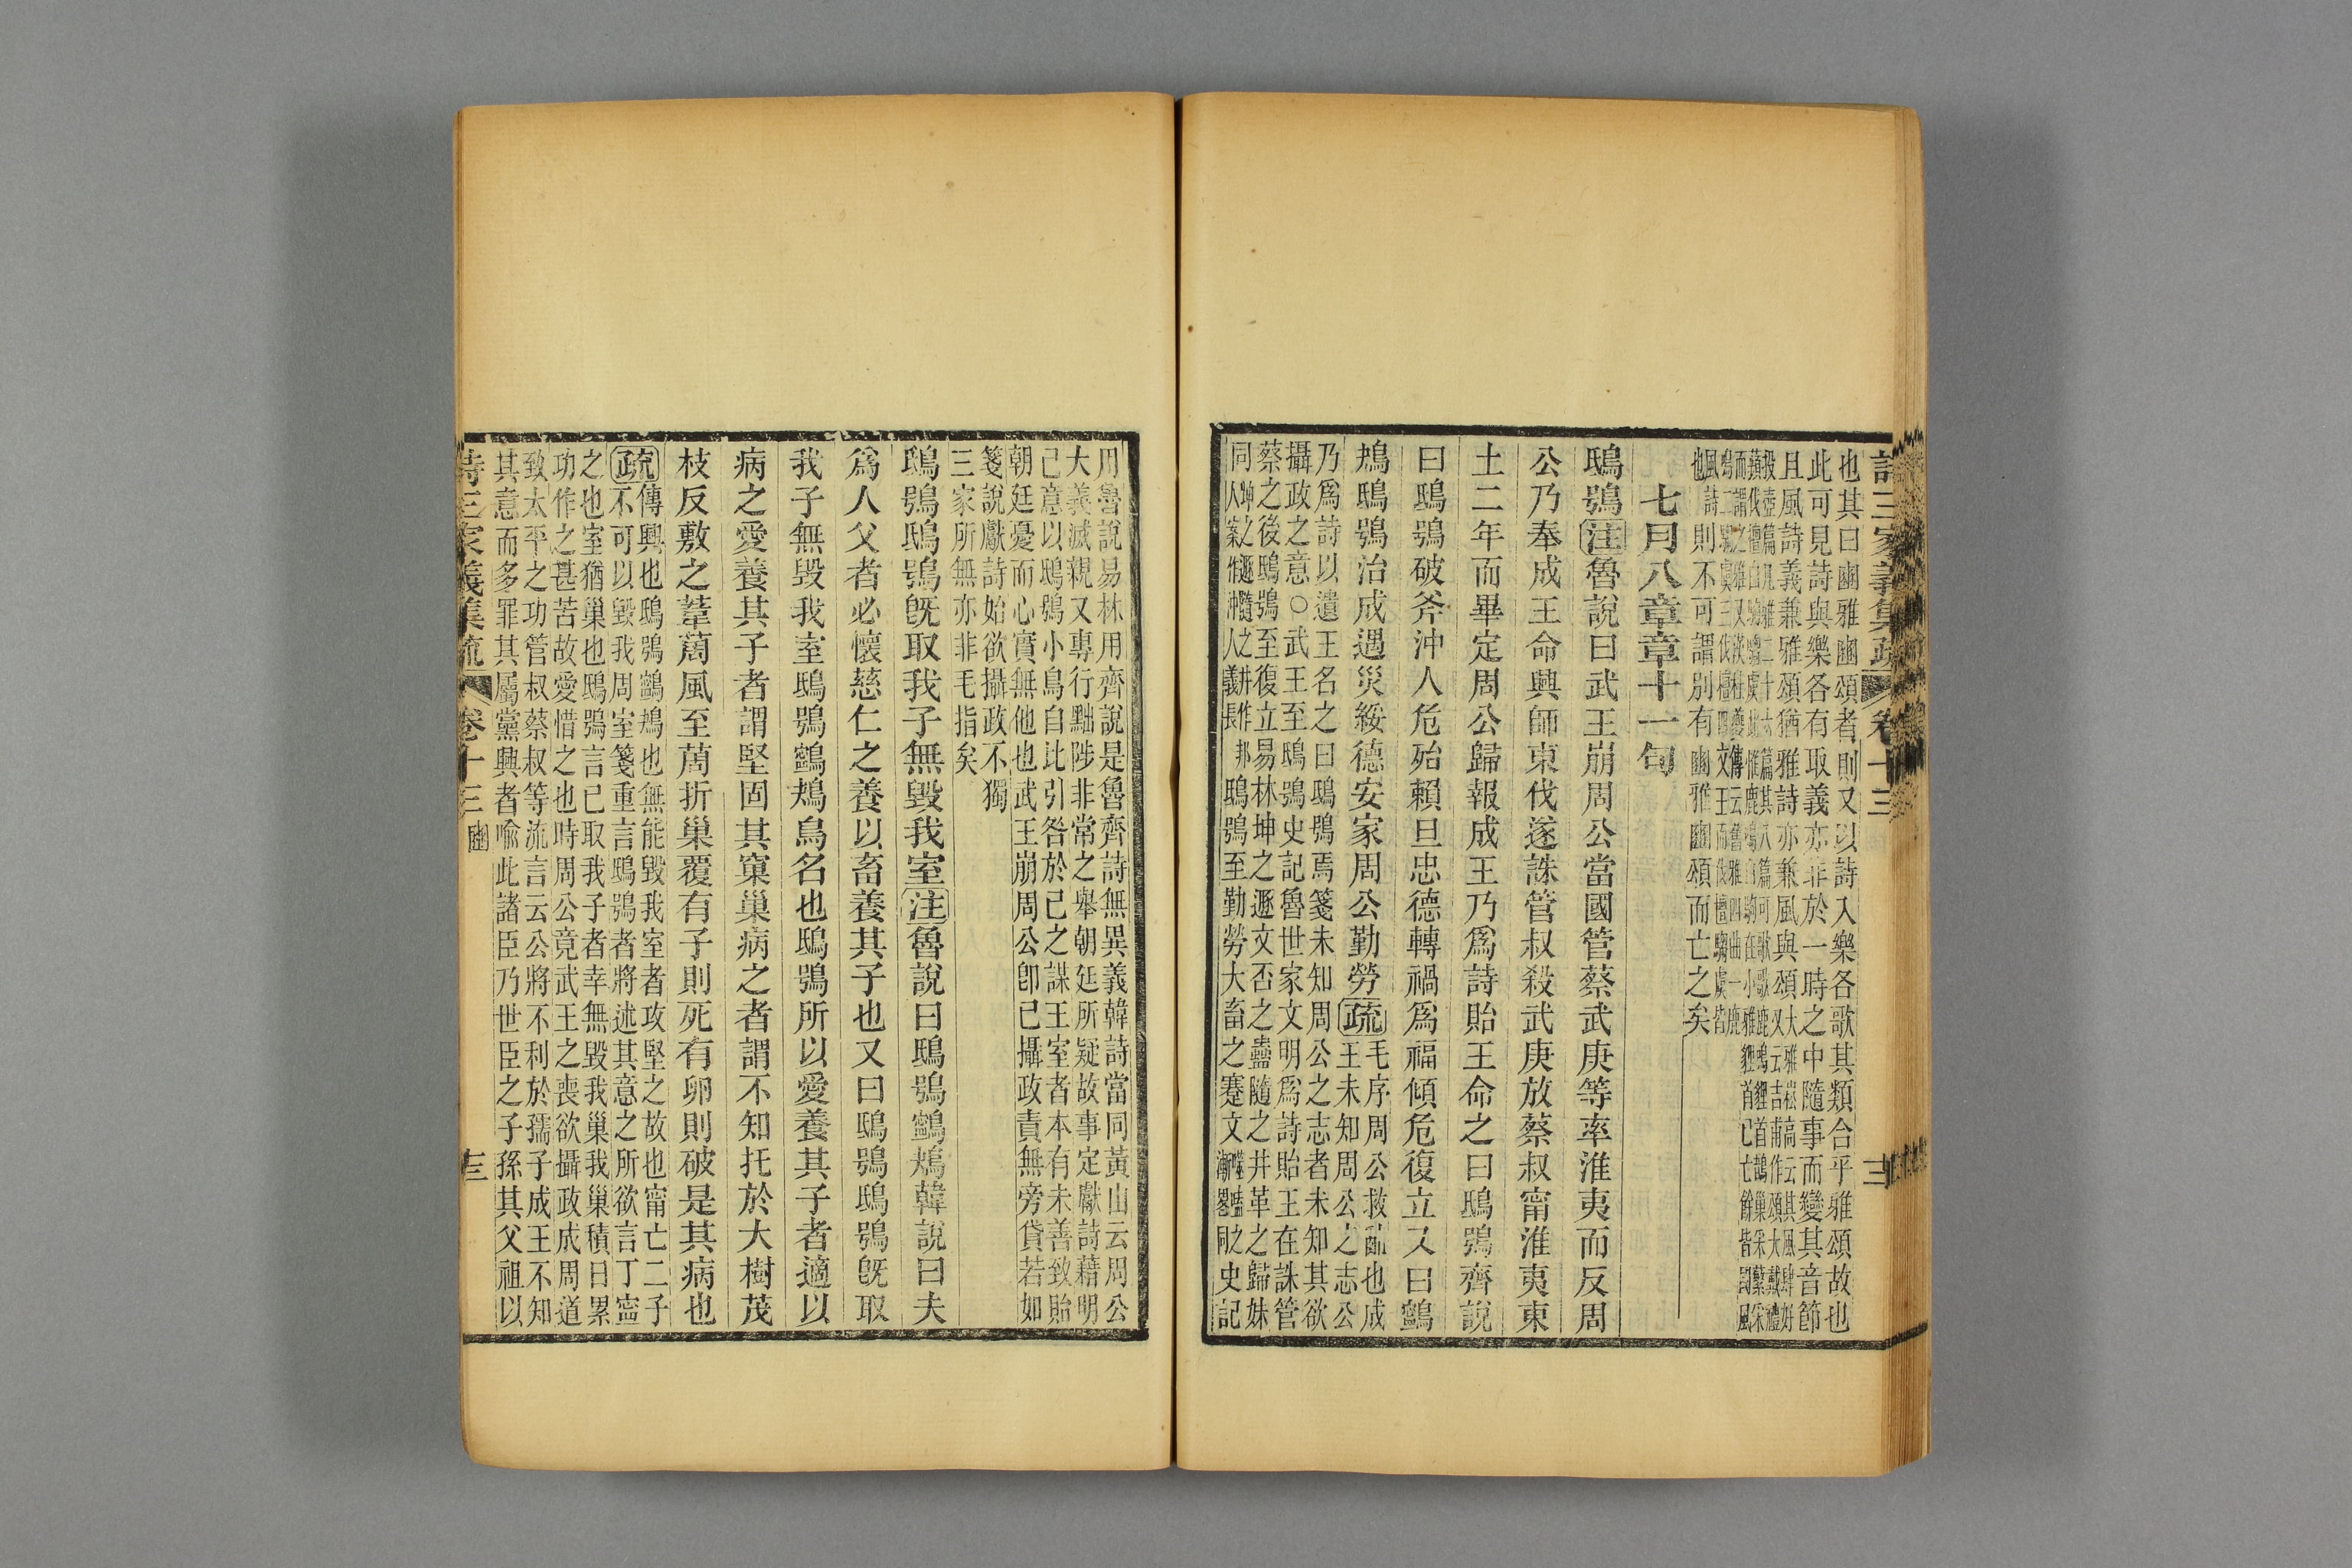 詩三家義集疏 卷十三
也其曰豳雅豳頌者則又以詩入樂各歌其類合乎雅頌故也
此可見詩與樂各有取義亦非於一時之中隨事而變其音節
且風詩義兼雅頌猶雅詩亦兼風與頌大雅崧高云其風肆好
又云吉甫作頌大戴禮
投壺篇凡雅二十六篇其八篇可歌歌鹿鳴貍首鵲巢采蘩采
蘋伐檀白駒騶虞
風詩則不可謂別有豳雅豳頌而亡之矣
七月八章章十一句
鴟鴞注魯說曰武王崩周公當國管蔡武庚等率淮夷而反周
公乃奉成王命興師東伐遂誅管叔殺武庚放蔡叔甯淮夷東
土二年而畢定周公歸報成王乃爲詩貽王命之曰鴟鴞齊說
曰鴟鴞破斧沖人危殆賴旦忠德轉禍爲福傾危復立又曰鸋
鴂鴟鴞治成遇災綏德安家周公勤勞疏毛序周公救亂也成
王未知周公之志公
乃爲詩以遺王名之曰鴟鴞焉箋未知周公之志者未知其欲
攝政之意○武王至鴟鴞史記魯世家文明爲詩貽王在誅管
蔡之後鴟鴞至復立易林坤之遯文否之蠱隨之井革之歸妹
同坤之遯隨之井作邦人家作沖人義長鴟鴞至勤勞大畜之蹇文噬嗑之漸畧同史記
用魯說易林用齊說是魯齊詩無異義韓詩當同黃山云周公
大義滅親又專行黜陟非常之舉朝廷所疑故事定獻詩藉明
己意以鴟鴞小鳥自比引咎於己之謀王室者本有未善致貽
朝廷憂而心實無他也武王崩周公卽已攝政責無旁貸若如
箋說獻詩始欲攝政不獨
三家所無亦非毛指矣
鴟鴞鴟鴞旣取我子無毀我室注魯說曰鴟鴞鸋鴂韓說曰夫
爲人父者必懷慈仁之養以畜養其子也又曰鴟鴞鴟鴞旣取
我子無毀我室鴟鴞鸋鴂鳥名也鴟鴞所以愛養其子者適以
病之愛養其子者謂堅固其窠巢病之者謂不知托於大樹茂
枝反敷之葦䔍風至䔍折巢覆有子則死有卵則破是其病也
疏傳興也鴟鴞鸋鴂也無能毀我室者攻堅之故也甯亡二子
不可以毀我周室箋重言鴟鴞者將述其意之所欲言丁寍
之也室猶巢也鴟鴞言已取我子者幸無毀我巢我巢積日累
功作之甚苦故愛惜之也時周公竟武王之喪欲攝政成周道
致太平之功管叔蔡叔等流言云公將不利於孺子成王不知
其意而多罪其屬黨興者喩此諸臣乃世臣之子孫其父祖以
詩三家義集疏 卷十三 豳 十三